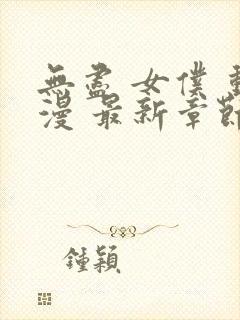 無盡 女僕 動
漫 最新章節
鍾穎